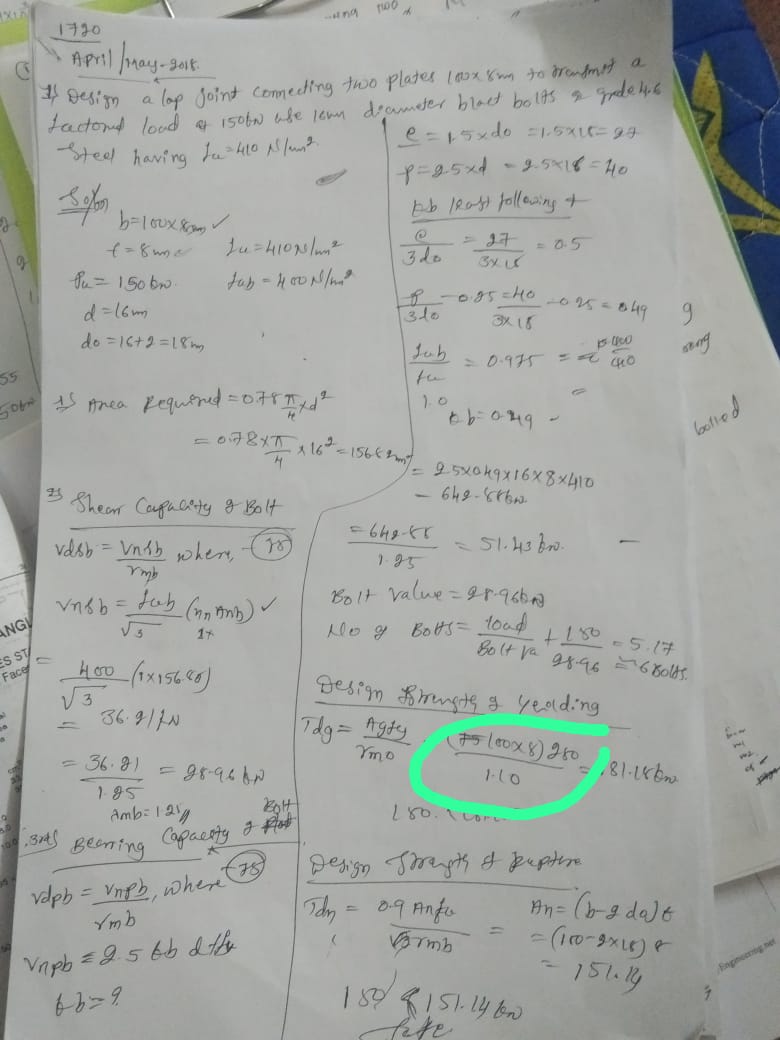 1720
April/May-2018.
1) Design a lap joint connecting two plates 100x8mm to transmit a
factored load of 150kN use 16mm diameter black bolts & grade 4.6
Steel having fu=410 N/mm²
Soln
b=100x8mm ✓
t=8mm
fu=410N/mm²
Pu=150kN.
fub=400N/mm²
d=16mm
do=16+2=18mm
1) Area Required=0.78 π/4 xd²
=0.78xπ/4 x16²=156.82mm²
2) Shear Capacity of Bolt
Vdsb=Vnsb/γmb where,
Vnsb=fub/√3 (nn Anb) ✓
=400/√3 (1x156.80)
= 36.21kN
=36.21/1.25 = 28.96kN
γmb=1.25
3rd) Bearing Capacity of Bolt
Vdpb=Vnpb/γmb, where
Vnpb=2.5 kb dtfu
kb=?
e=1.5xdo=1.5x18=27
p=2.5xd=2.5x16=40
kb least following of
e/3do=27/3x18=0.5
p/3do-0.25=40/3x18-0.25=0.49
fub/fu=0.975=400/410
1.0
kb=0.49
=2.5x0.49x16x8x410
=642.88kN
=642.88/1.25=51.43kN.
Bolt Value=28.96kN
No of Bolts=load/Bolt Va+150/28.96=5.17
≃6Bolts.
Design Strength of Yeilding
Tdg=Agfy/γmo (100x8)250/1.10=181.18kN
Design Strength of Rupture
Tdn=0.9 Anfu/γmb =
An=(b-2do)t
=(100-2x18)8
=151.14
150 151.14kN
Safe
bolted
Engineering.net